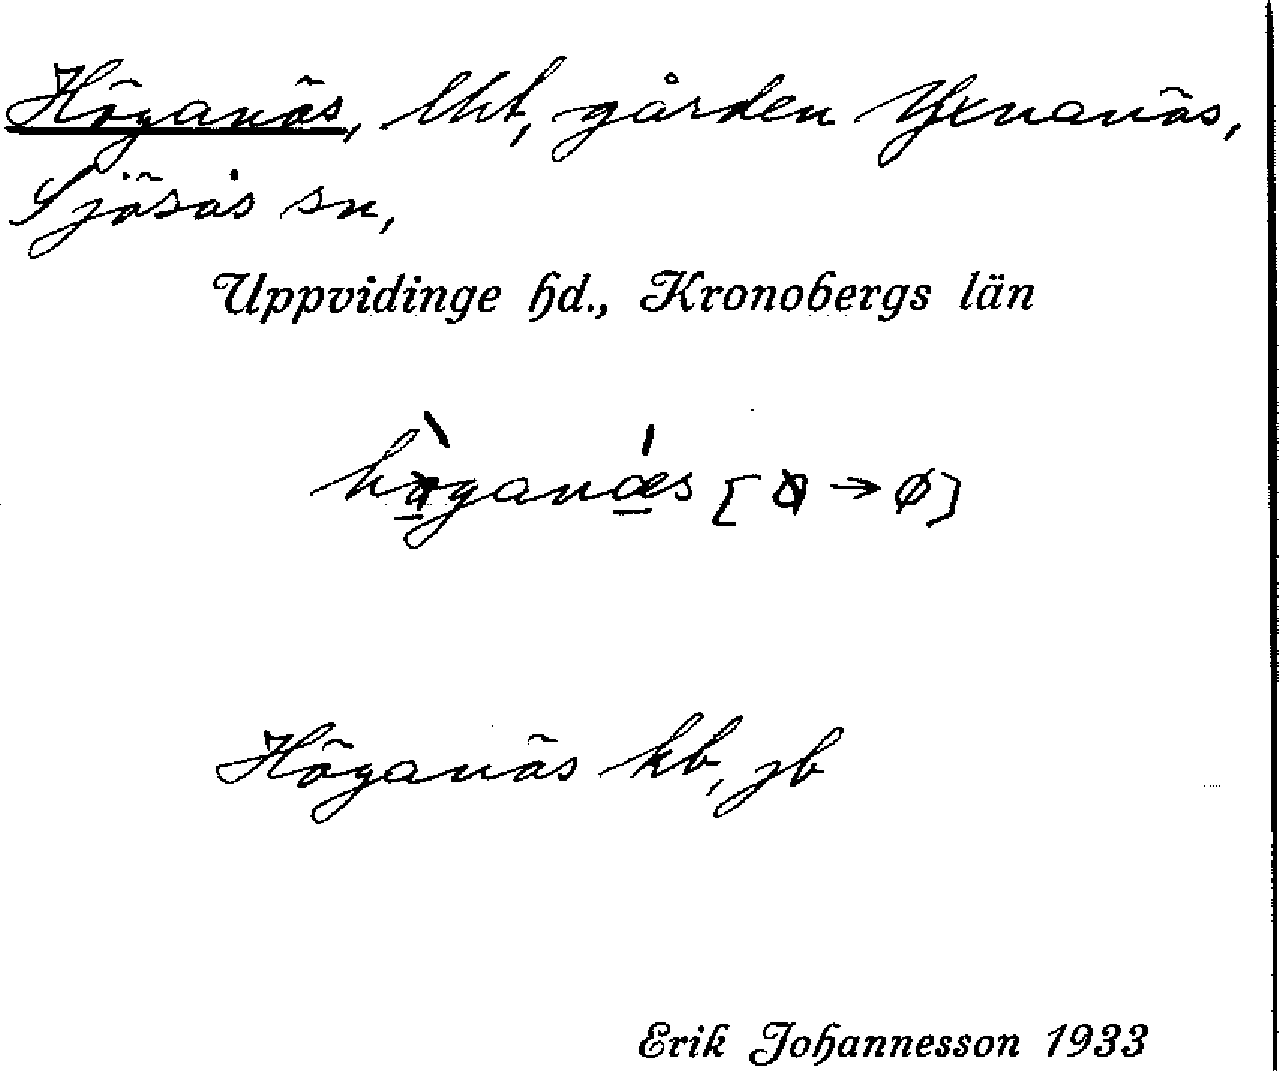 Höganäs, lht, gården Yxnanäs,
Sjösås sn,
Uppvidinge hd., Kronobergs län
höganæs [ → ø]
Höganäs kb, jb
Erik Johannesson 1933